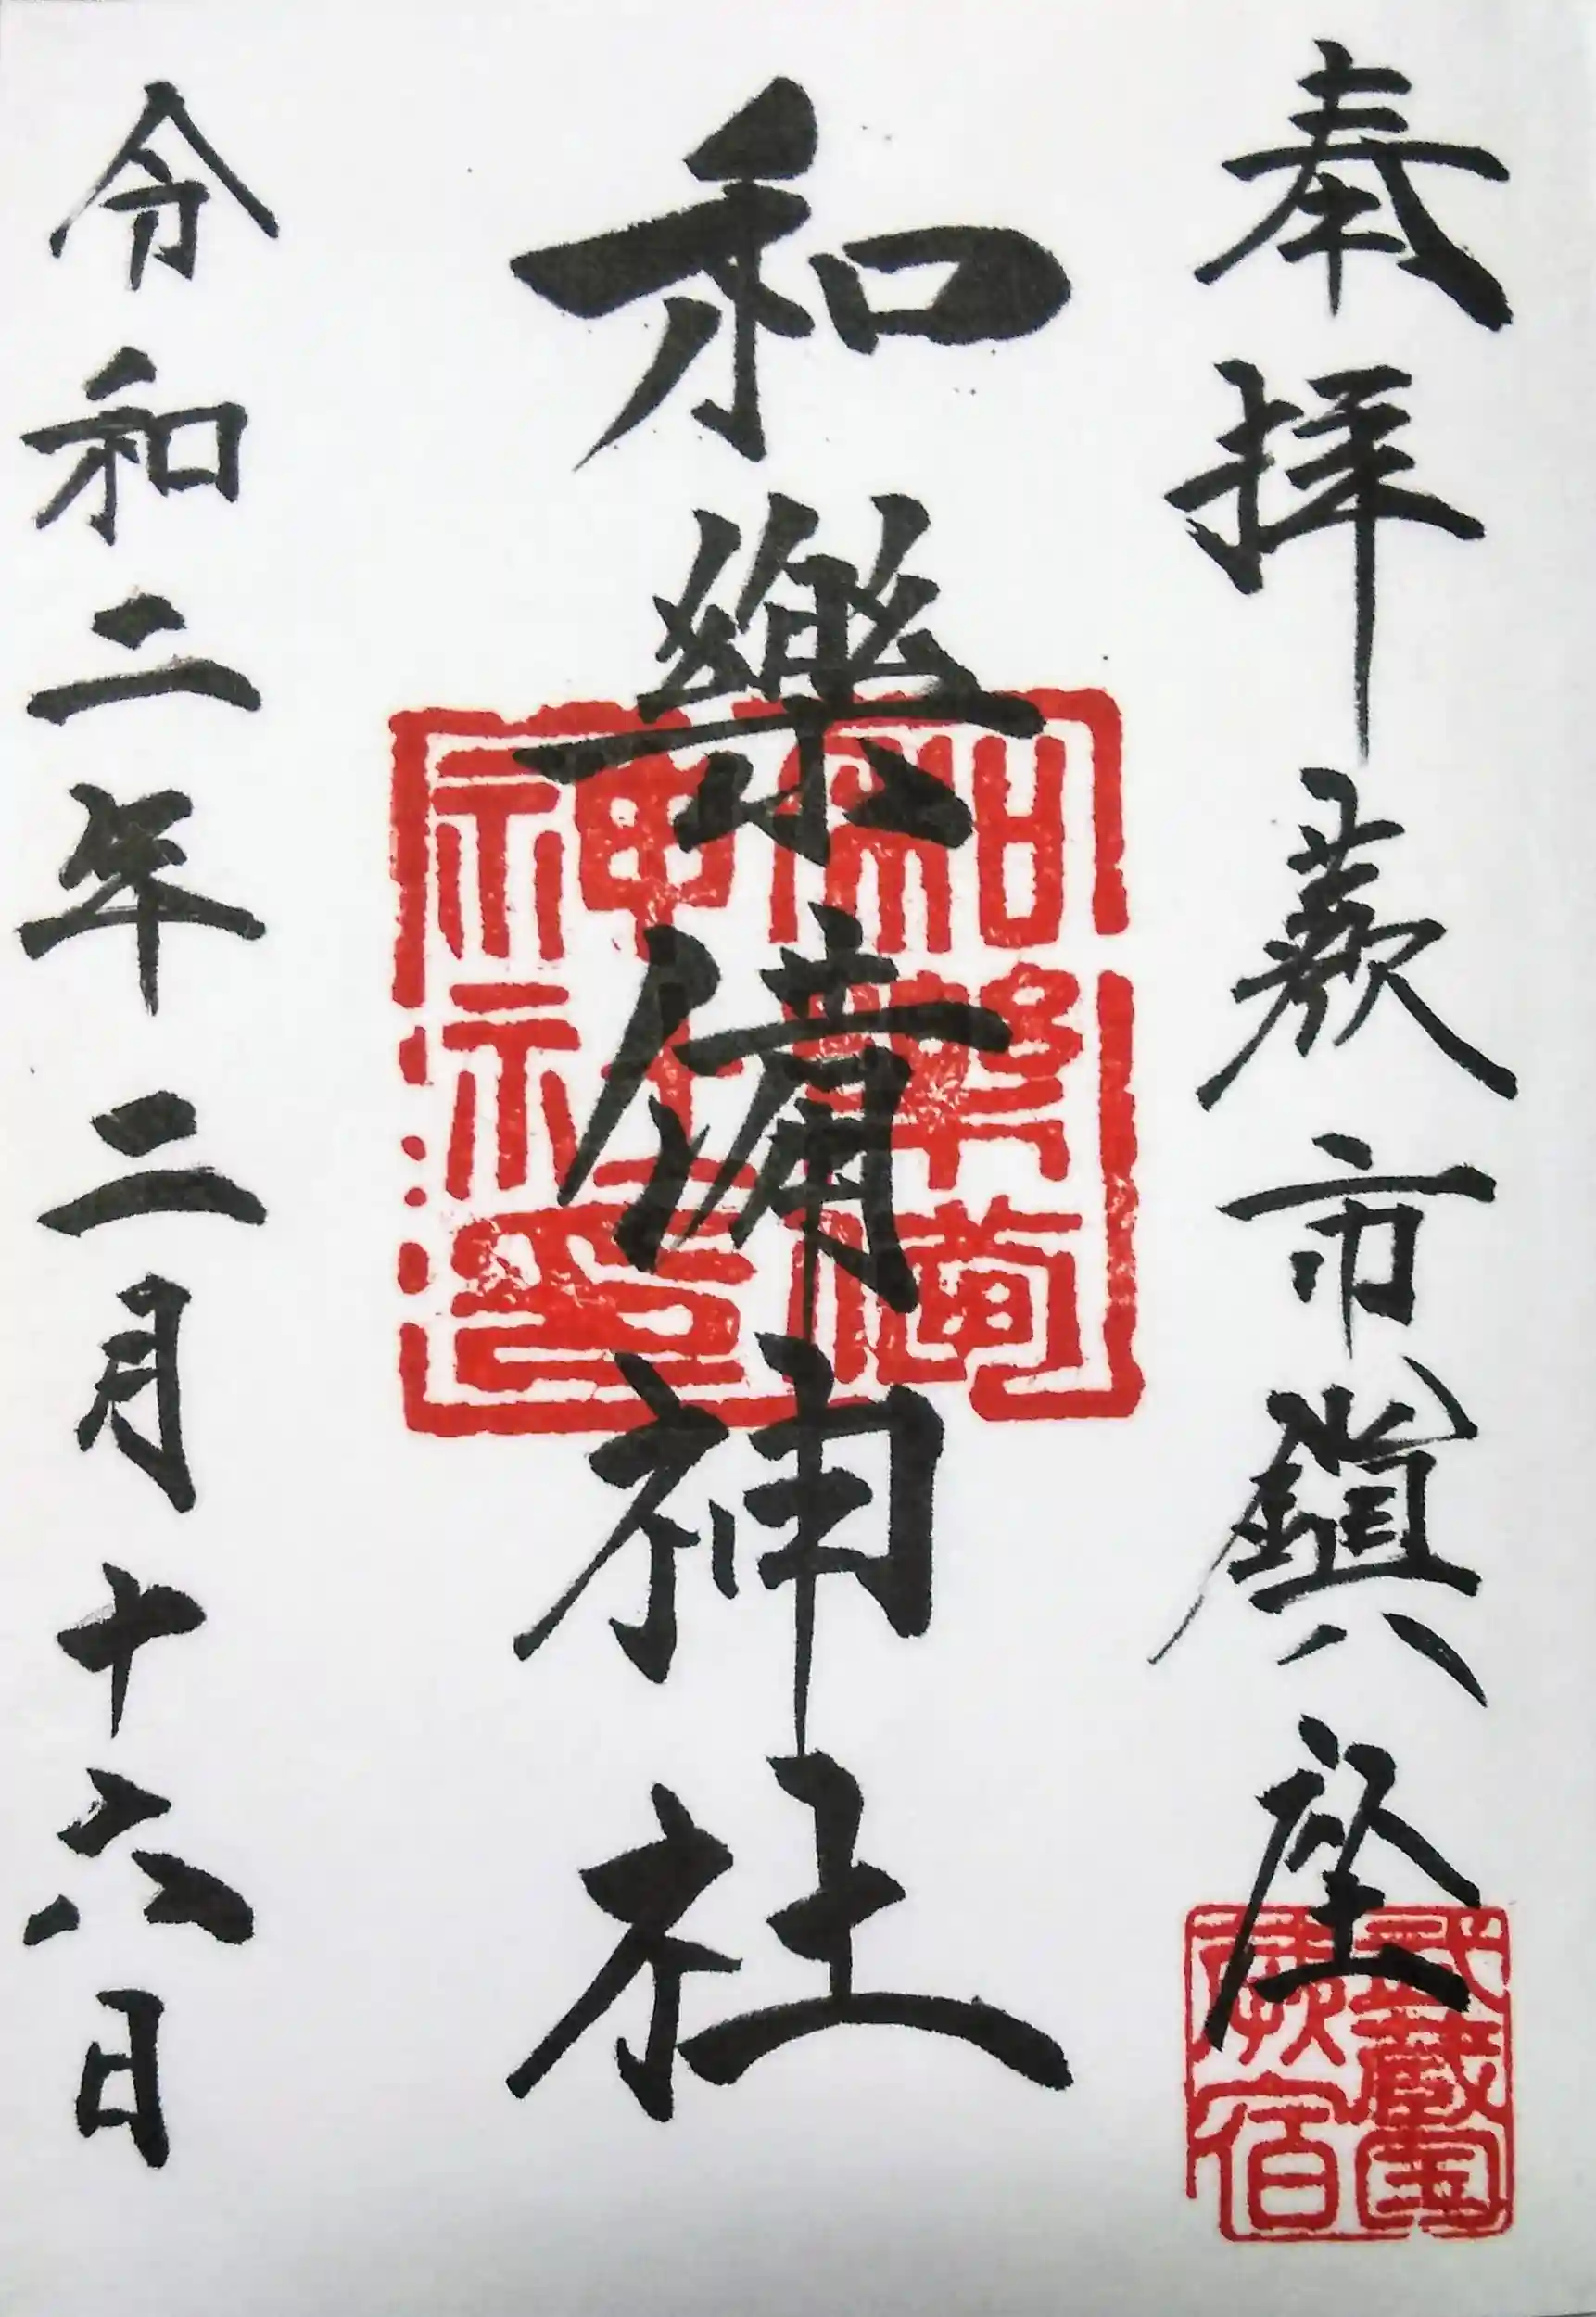 奉拝 蕨市鎮座
和樂備神社
令和二年二月十六日
和樂備
神社印
武蔵国
蕨宿